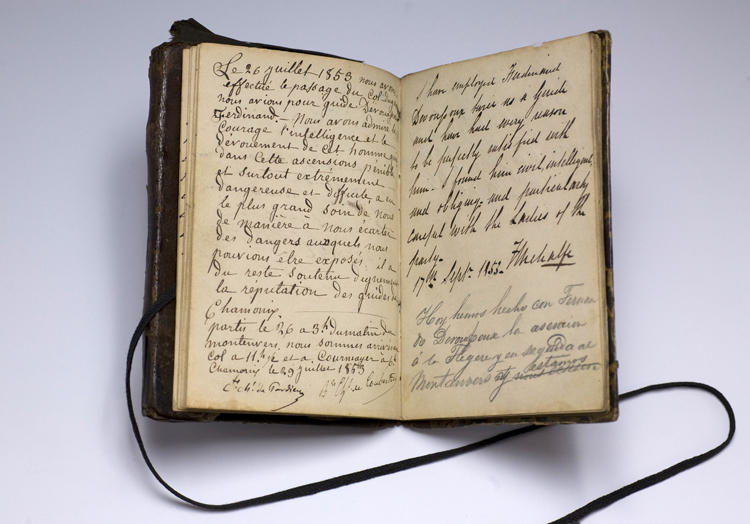 Le 26 juillet 1853 nous avons
effectué le passage du Col du
nous avions pour guide Devouassoux
Ferdinand. - Nous avons admiré le
Courage l'intelligence et le
dévouement de cet homme
dans Cette ascensions pénible
et surtout extrêmement
dangereuse et difficile, a eu
le plus grand soin de nous
de manière à nous écarter
des dangers auxquels nous
pouvions être exposés. il a
du reste soutenu dignement
la réputation des guides de
Chamonix
partis le 26 a 3h du matin du
montenvers, nous sommes arrivés
col a 11.h ½ et a Courmayer à 6h
Chamonix le 29 juillet 1853
I have employed Ferdinand
Devouassoux twice as a Guide
and have had every reason
to be perfectly satisfied with
him - I found him civil, intelligent,
and obliging - and particularly
careful with the Ladies of the
party.
17th Septr 1853. F Metcalfe
Hoy hemos hecho con Fernan
do Devouassoux la ascension
à la Flegere y en seguida al
Montenvers estamos